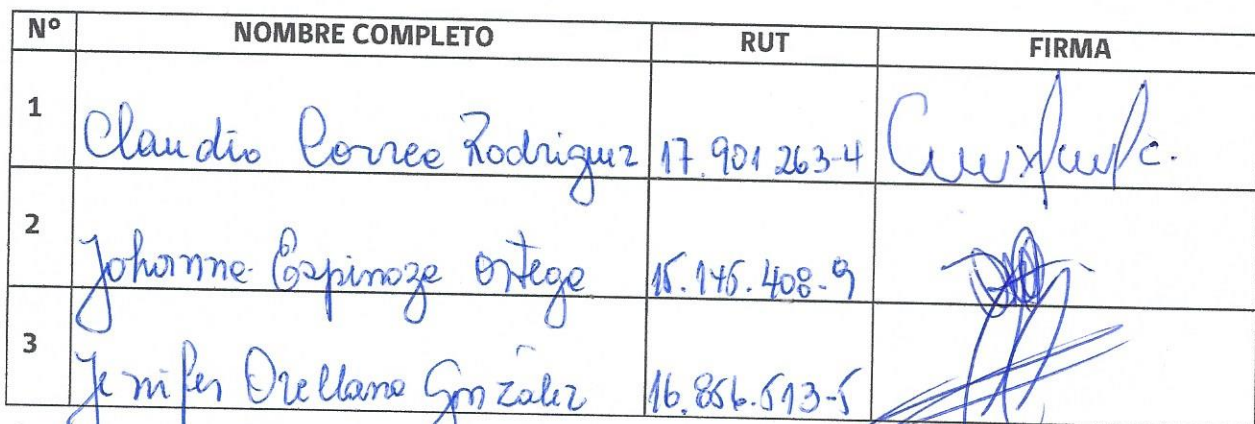 N° NOMBRE COMPLETO RUT FIRMA
1 Claudio Correa Rodriguez 17.901.263-4
2 Johanna Espinoza Ortega 15.145.408-9
3 Jenifer Orellana González 16.856.513-5